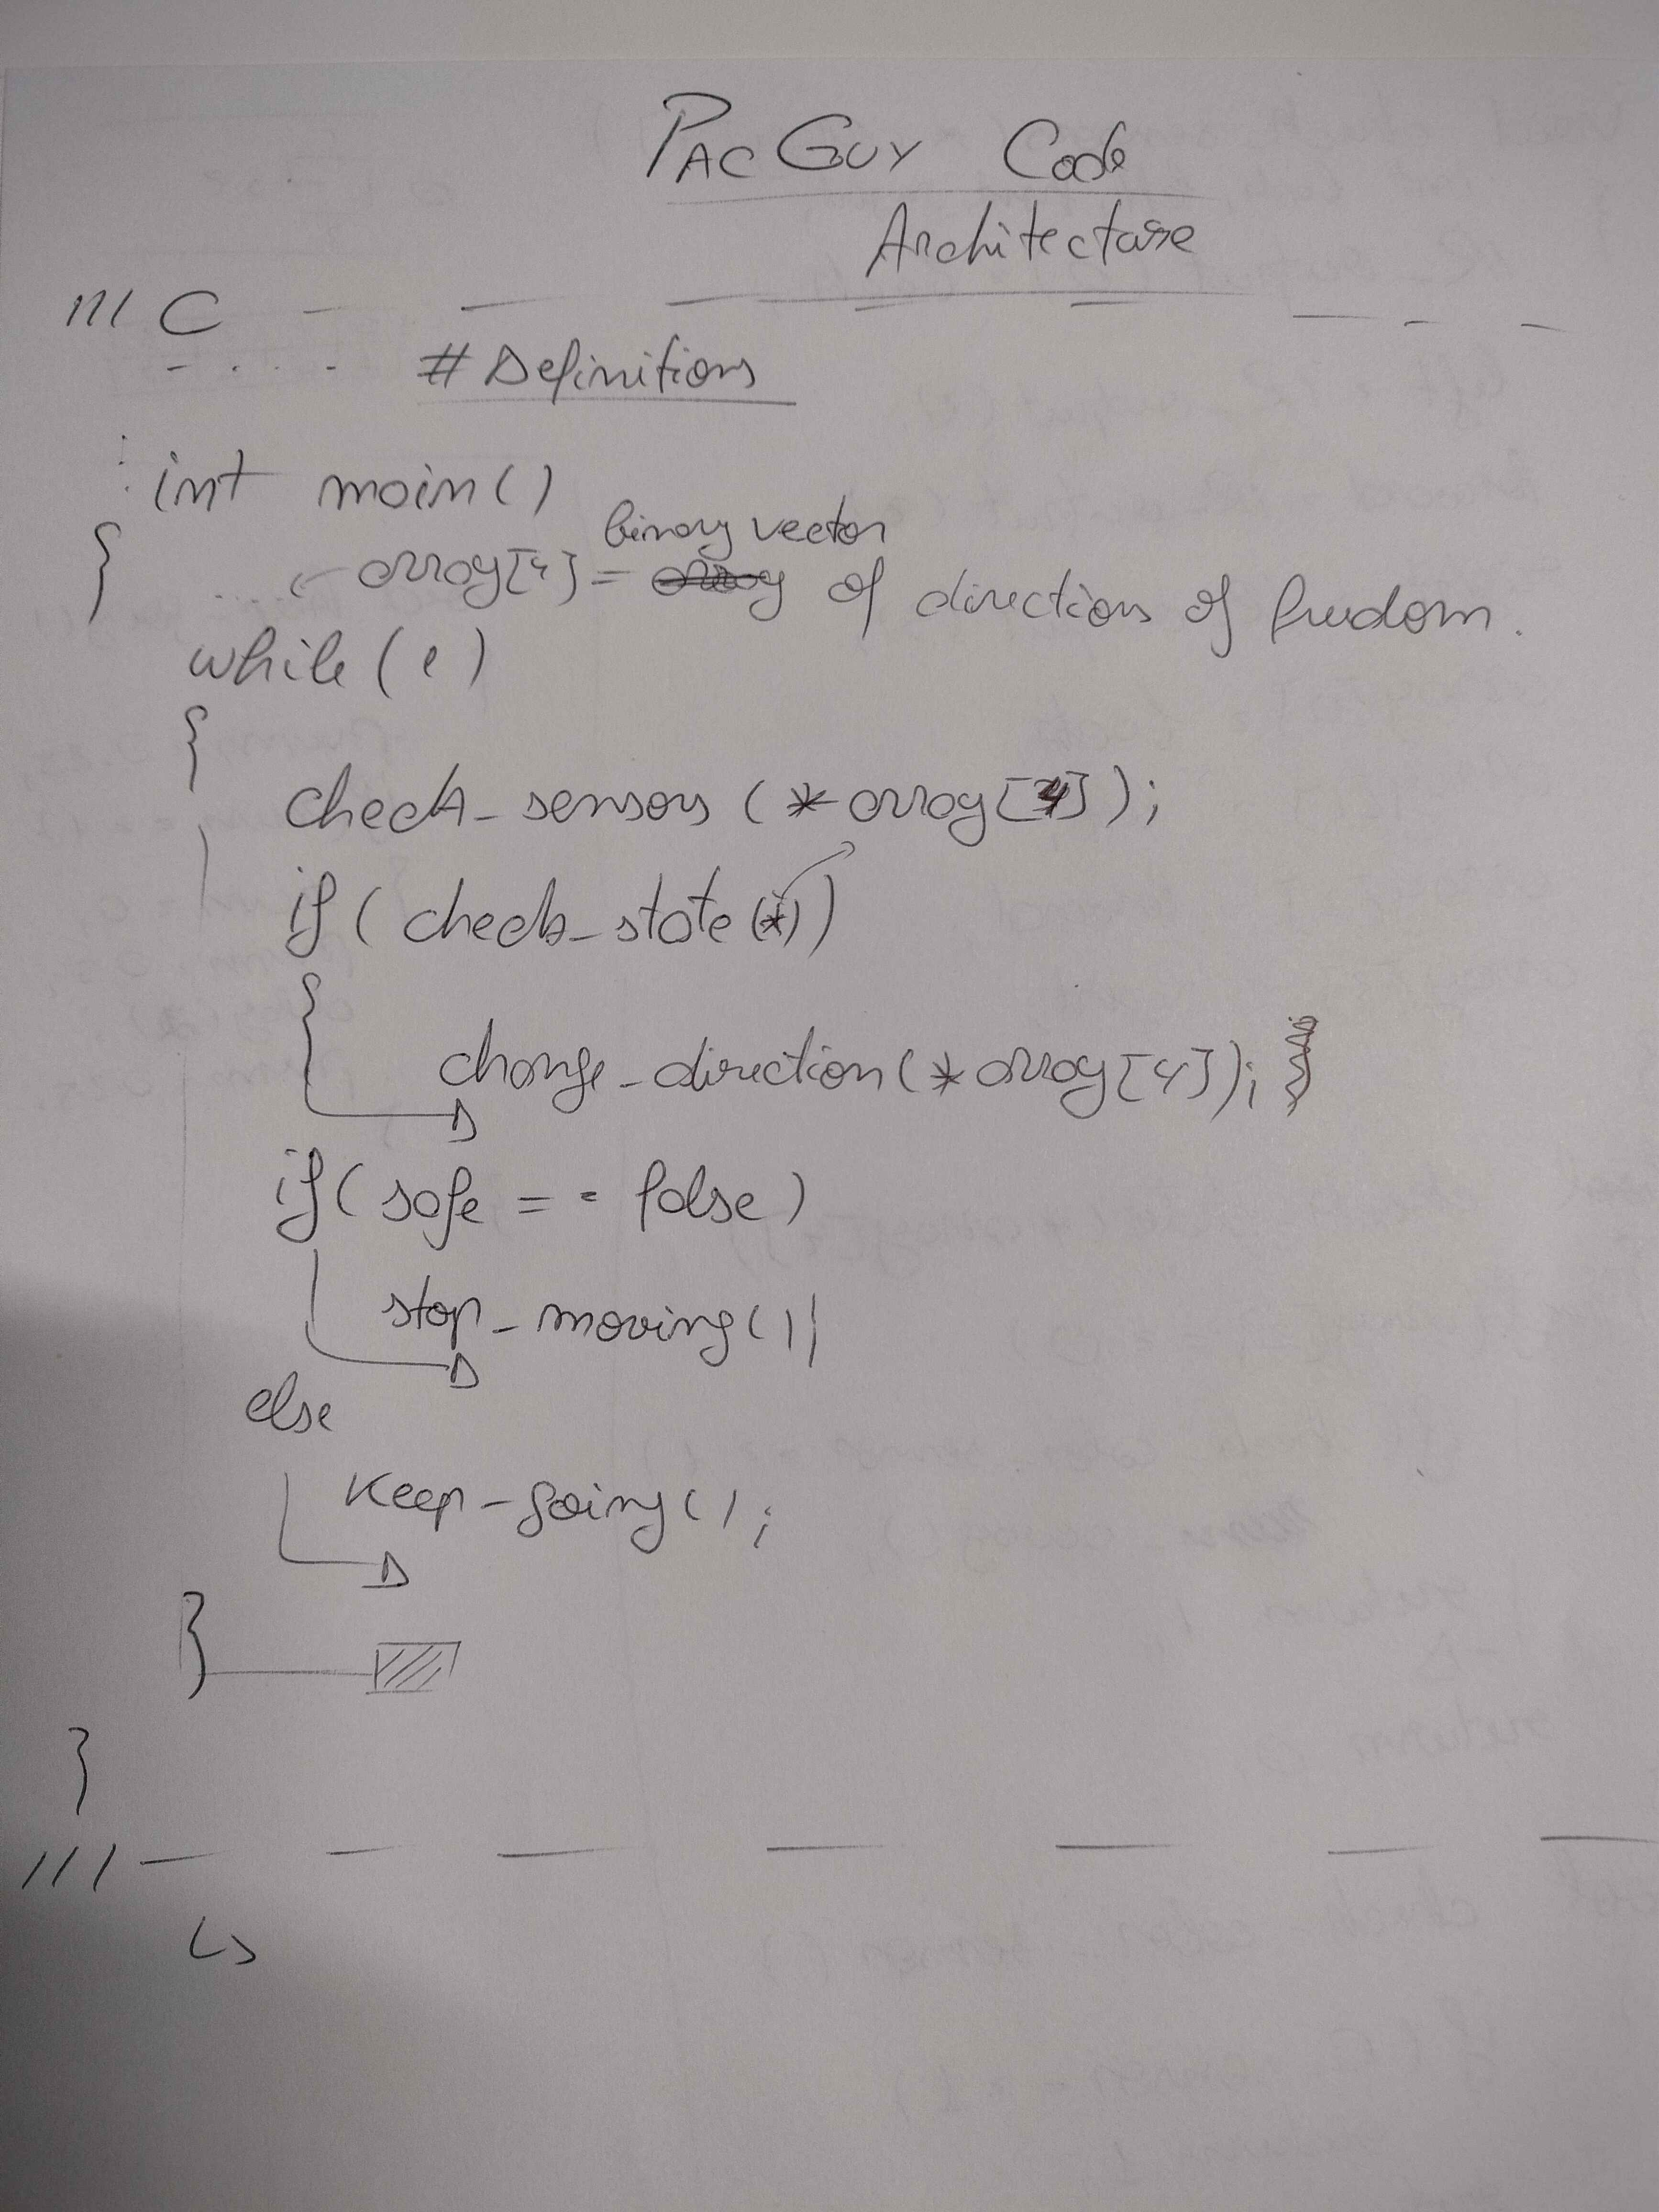 PAC GUY Code
Architecture
/// C
# Definitions
int main()
{
binary vector
array[4] = array of directions of freedom.
while(1)
{
check_sensors (*array[4]);
if( check_state(*))
{
change_direction(*array[4]);
if( safe == false)
stop_moving()
else
Keep-going();
}
}
///